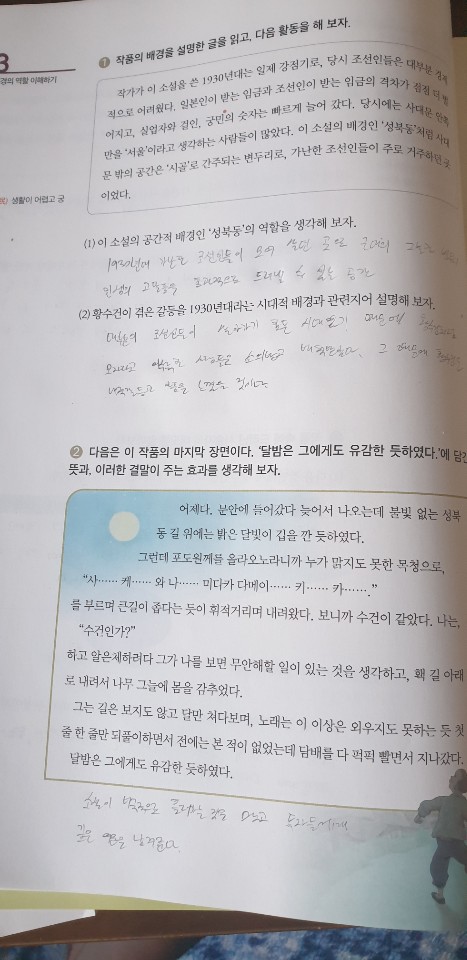 3
경의 역할 이해하기
1 작품의 배경을 설명한 글을 읽고, 다음 활동을 해 보자.
작가가 이 소설을 쓴 1930년대는 일제 강점기로, 당시 조선인들은 대부분 경제
적으로 어려웠다. 일본인이 받는 임금과 조선인이 받는 임금의 격차가 점점 더 벌
어지고, 실업자와 걸인, 궁민의 숫자는 빠르게 늘어 갔다. 당시에는 사대문 안쪽
만을 '서울'이라고 생각하는 사람들이 많았다. 이 소설의 배경인 '성북동'처럼 사대
문 밖의 공간은 '시골'로 간주되는 변두리로, 가난한 조선인들이 주로 거주하던 곳
이었다.
생활이 어렵고 궁
(1) 이 소설의 공간적 배경인 '성북동'의 역할을 생각해 보자.
1930년대 가난한 조선인들이 모여 살던 곳으로
드러낼 수 있는 공간
(2) 황수건이 겪은 갈등을 1930년대라는 시대적 배경과 관련지어 설명해 보자.
조선인들이 살아가기 힘든 시대였기 때문에
그 때문에
것이다.
2 다음은 이 작품의 마지막 장면이다. '달밤은 그에게도 유감한 듯하였다.'에 담긴
뜻과, 이러한 결말이 주는 효과를 생각해 보자.
어제다. 문안에 들어갔다 늦어서 나오는데 불빛 없는 성북
동 길 위에는 밝은 달빛이 깁을 깐 듯하였다.
그런데 포도원께를 올라오노라니까 누가 맑지도 못한 목청으로,
"사…… 케…… 와 나…… 미다카 다메이…… 키…… 카……."
를 부르며 큰길이 좁다는 듯이 휘적거리며 내려왔다. 보니까 수건이 같았다. 나는,
"수건인가?"
하고 알은체하려다 그가 나를 보면 무안해할 일이 있는 것을 생각하고, 홱 길 아래
로 내려서 나무 그늘에 몸을 감추었다.
그는 길은 보지도 않고 달만 쳐다보며, 노래는 이 이상은 외우지도 못하는 듯 첫
줄 한 줄만 되풀이하면서 전에는 본 적이 없었는데 담배를 다 퍽퍽 빨면서 지나갔다.
달밤은 그에게도 유감한 듯하였다.
것을 막고 독자들에게
깊은 여운을 남겨준다.